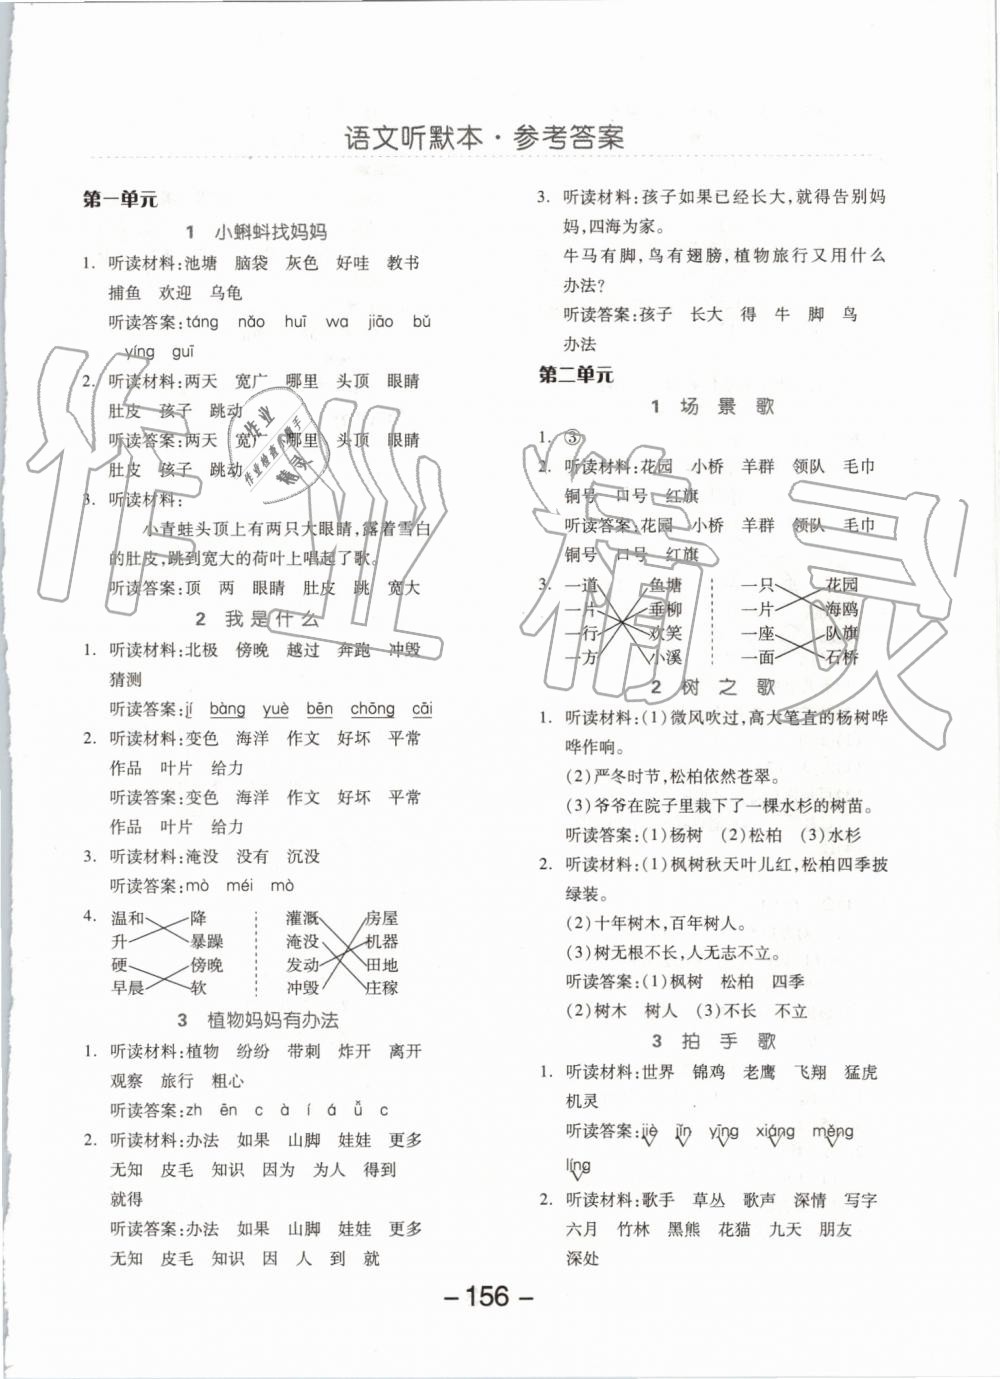 语文听默本·参考答案
第一单元
1 小蝌蚪找妈妈
1. 听读材料:池塘 脑袋 灰色 好哇 教书
捕鱼 欢迎 乌龟
听读答案:táng nǎo huī wa jiāo bǔ
yíng guī
2. 听读材料:两天 宽广 哪里 头顶 眼睛
肚皮 孩子 跳动
听读答案:两天 宽广 哪里 头顶 眼睛
肚皮 孩子 跳动
3. 听读材料:
小青蛙头顶上有两只大眼睛,露着雪白
的肚皮,跳到宽大的荷叶上唱起了歌。
听读答案:顶 两 眼睛 肚皮 跳 宽大
2 我是什么
1. 听读材料:北极 傍晚 越过 奔跑 冲毁
猜测
听读答案:jí bàng yuè bēn chōng cāi
2. 听读材料:变色 海洋 作文 好坏 平常
作品 叶片 给力
听读答案:变色 海洋 作文 好坏 平常
作品 叶片 给力
3. 听读材料:淹没 没有 沉没
听读答案:mò méi mò
4. 温和 降 灌溉 房屋
升 暴躁 淹没 机器
硬 傍晚 发动 田地
早晨 软 冲毁 庄稼
3 植物妈妈有办法
1. 听读材料:植物 纷纷 带刺 炸开 离开
观察 旅行 粗心
听读答案:zh ēn c à í á ǚ c
2. 听读材料:办法 如果 山脚 娃娃 更多
无知 皮毛 知识 因为 为人 得到
就得
听读答案:办法 如果 山脚 娃娃 更多
无知 皮毛 知识 因 人 到 就
3. 听读材料:孩子如果已经长大,就得告别妈
妈,四海为家。
牛马有脚,鸟有翅膀,植物旅行又用什么
办法?
听读答案:孩子 长大 得 牛 脚 鸟
办法
第二单元
1 场景歌
1. ③
2. 听读材料:花园 小桥 羊群 领队 毛巾
铜号 口号 红旗
听读答案:花园 小桥 羊群 领队 毛巾
铜号 口号 红旗
3. 一道 鱼塘 一只 花园
一片 垂柳 一片 海鸥
一行 欢笑 一座 队旗
一方 小溪 一面 石桥
2 树之歌
1. 听读材料:(1)微风吹过,高大笔直的杨树哗
哗作响。
(2)严冬时节,松柏依然苍翠。
(3)爷爷在院子里栽下了一棵水杉的树苗。
听读答案:(1)杨树 (2)松柏 (3)水杉
2. 听读材料:(1)枫树秋天叶儿红,松柏四季披
绿装。
(2)十年树木,百年树人。
(3)树无根不长,人无志不立。
听读答案:(1)枫树 松柏 四季
(2)树木 树人 (3)不长 不立
3 拍手歌
1. 听读材料:世界 锦鸡 老鹰 飞翔 猛虎
机灵
听读答案:jiè jǐn yīng xiáng měng
líng
2. 听读材料:歌手 草丛 歌声 深情 写字
六月 竹林 黑熊 花猫 九天 朋友
深处
- 156 -
作业精灵